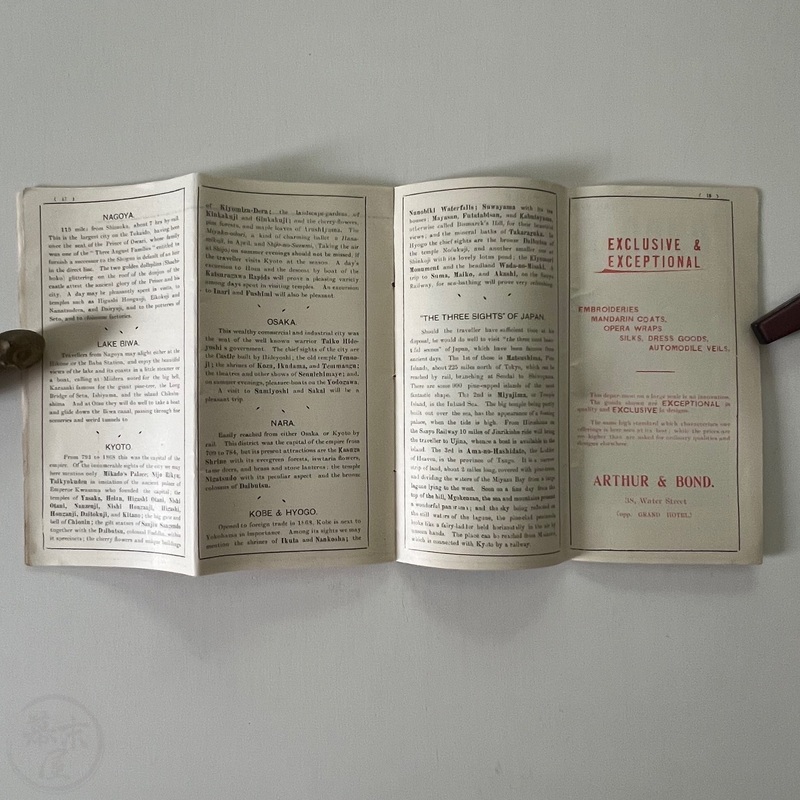 ( 47 )
NAGOYA.
115 miles from Shizuoka, about 7 hrs by rail.
This is the largest city on the Tokaido, having been
once the seat of the Prince of Owari, whose family
was one of the "Three August Families" entitled to
furnish a successor to the Shogun in default of an heir
in the direct line. The two golden dolphins
glittering on the roof of the donjon of the
castle attest the ancient glory of the Prince and his
city. A day may be pleasantly spent in visits, to
temples such as Higashi Hongwaji,
and to the potteries of
Seto, and to cloisonne factories.
LAKE BIWA.
Travellers from Nagoya may alight either at the
Station, and enjoy the beautiful
views of the lake and its coasts in a little steamer or
a boat, calling at Miidera noted for the big bell,
Karasaki famous for the giant pine-tree, the Long
Bridge of Seta, Ishiyama, and the island Chikubu-
shima. And at Otsu they will do well to take a boat
and glide down the Biwa canal, passing through for
scenery and weird tunnels to
KYOTO.
From 793 to 1868 this was the capital of the
empire. Of the innumerable sights of the city we may
here mention only Mikado's Palace; Nijo Rikyu,
Taikyokuden in imitation of the ancient palace of
Emperor Kwammu who founded the capital; the
temples of Yasaka, Heira, Higashi Otani, Nishi
Otani, Nanzenji, Nishi Honganji, Higashi
Honganji, Daitokuji, and Kitano; the big gate and
bell of Chionin; the gilt statues of
together with the Daibutsu, colossal Buddha, within
its precincts; the cherry flowers and unique buildings
of Kiyomizu-Dera; the landscape-gardens of
Kinkakuji and Ginkakuji; and the cherry-flowers,
pine forests, and maple leaves of Arashiyama. The
Miyako-odori, a kind of charming ballet
in April, and Taking the air
at Shijo on summer evenings should not be missed, if
the traveller visits Kyoto at the season. A day's
excursion to Hozu and the descent by boat of the
Katsuragawa Rapids will prove a pleasing variety
among days spent in visiting temples. An excursion
to Inari and Fushimi will also be pleasant
OSAKA.
This wealthy commercial and industrial city was
the seat of the well known warrior Taiko Hide-
yoshi's government. The chief sights of the city are
the Castle built by Hideyoshi; the old temple Tenno-
ji; the shrines of Kozu, Ikudama, and Temmangu;
the theatres and other shows of Sennichimaye; and,
on summer evenings, pleasure-boats on the Yodogawa.
A visit to Sumiyoshi and Sakai will be a
pleasant trip.
NARA.
Easily reached from either Osaka or Kyoto by
rail. This district was the capital of the empire from
709 to 784, but its present attractions are the Kasuga
Shrine with its evergreen forests, wistaria flowers,
tame deers, and brass and stone lanterns: the temple
Nigatsudo with its peculiar aspect and the bronze
colossus of Daibutsu.
KOBE & HYOGO.
Opened to foreign trade in 1868, Kobe is next to
Yokohama in importance. Among its sights we may
mention the shrines of Ikuta and Nankosha; the
Nunobiki Waterfalls; Suwayama with its tea
houses; Mayasan, Futatabisan, and Kabutoyama,
otherwise called Bismarck's Hill, for their beautiful
views; and the mineral baths of Takarazuka. In
Hyogo the chief sights are the bronze Daibutsu of
the temple Nofukuji, and another smaller one at
Shinkoji with its lovely lotus pond; the Kiyomori
Monument and the headland Wada-no-Misaki. A
trip to Suma, Maiko, and Akashi, on the Sanyo
Railway, for sea-bathing will prove very refreshing.
"THE THREE SIGHTS" OF JAPAN.
Should the traveller have sufficient time at his
disposal, he would do well to visit "the three beauti-
ful scenes" of Japan, which have been famous from
ancient days. The 1st of these is Matsushima, Pine
Islands, about 225 miles north of Tokyo, which can be
reached by rail, branching at Sendai to Shiogama.
There are some 800 pine-capped islands of the most
fantastic shape. The 2nd is Miyajima, or Temple
Island, in the Inland Sea. The big temple being partly
built out over the sea, has the appearance of a floating
palace, when the tide is high. From Hiroshima on
the Sanyo Railway 10 miles of Jinrikisha ride will bring
the traveller to Ujina, whence a boat is available to the
island. The 3rd is Ama-no-Hashidate, the Ladder
of Heaven, in the province of Tango. It is a narrow
strip of land, about 2 miles long, covered with pine-trees,
and dividing the waters of the Miyazu Bay from a large
lagoon lying to the west. Seen on a fine day from the
top of the hill, the sea and mountains present
a wonderful panorama; and the sky being reflected on
the still waters of the lagoon, the pinewood presents
looks like a fairy-ladder held horizontally in the air by
unseen hands. The place can be reached from Maizuru,
which is connected with Kyoto by a railway.
EXCLUSIVE &
EXCEPTIONAL
EMBROIDERIES
MANDARIN COATS,
OPERA WRAPS
SILKS, DRESS GOODS,
AUTOMOBILE VEILS.
This department on a large scale is an innovation.
The goods shown are EXCEPTIONAL in
quality and EXCLUSIVE in designs.
The same high standard which characterizes our
offerings is here seen at its best; while the prices are
no higher than are asked for ordinary qualities and
designs elsewhere.
ARTHUR & BOND.
38, Water Street
(opp. GRAND HOTEL)
幕末
屋